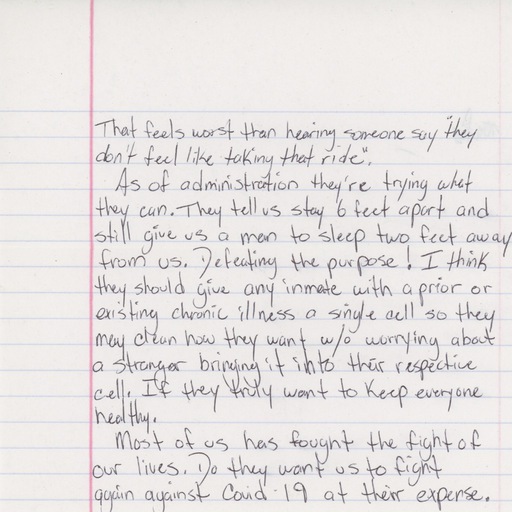 That feels worst than hearing someone say "they
don't feel like taking that ride".
As of administration they're trying what
they can. They tell us stay 6 feet apart and
still give us a man to sleep two feet away
from us. Defeating the purpose! I think
they should give any inmate with a prior or
existing chronic illness a single cell so they
may clean how they want w/o worrying about
a stranger bringing it into their respective
cell. If they truly want to keep everyone
healthy.
Most of us has fought the fight of
our lives. Do they want us to fight
again against Covid-19 at their expense.